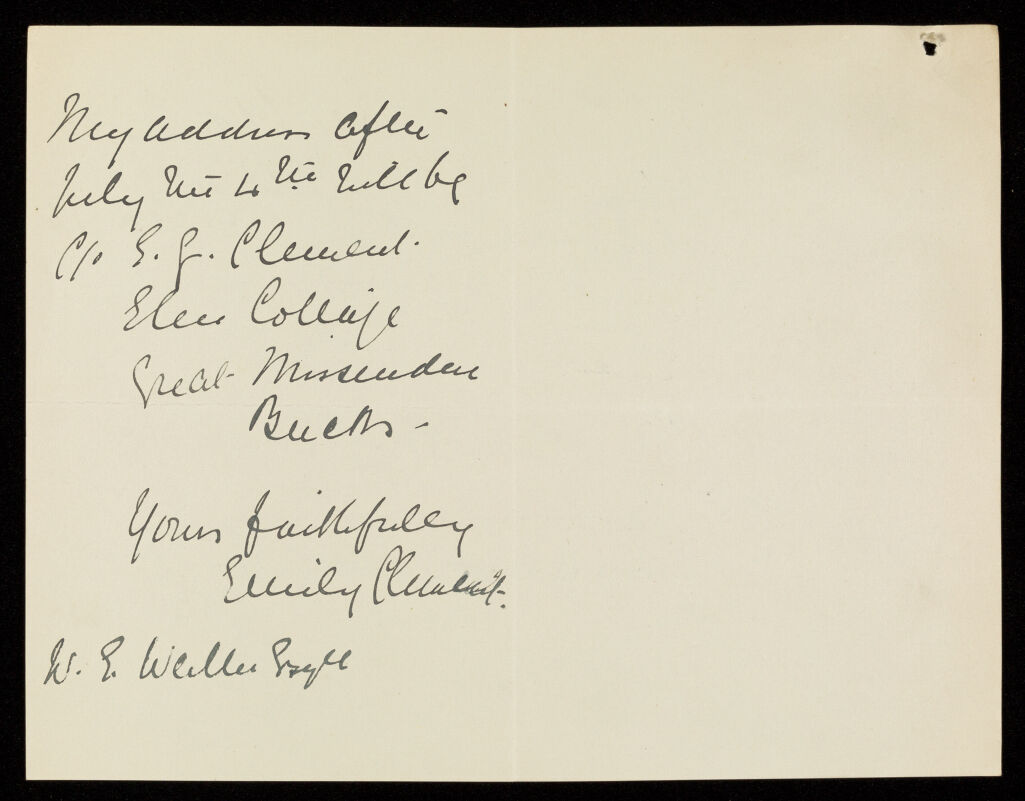 My address after
July the 4th will be
C/o E. J. Clement.
Elm Cottage
Great Missenden
Bucks -
Yours faithfully
Emily Clement.
W. E. Esqre